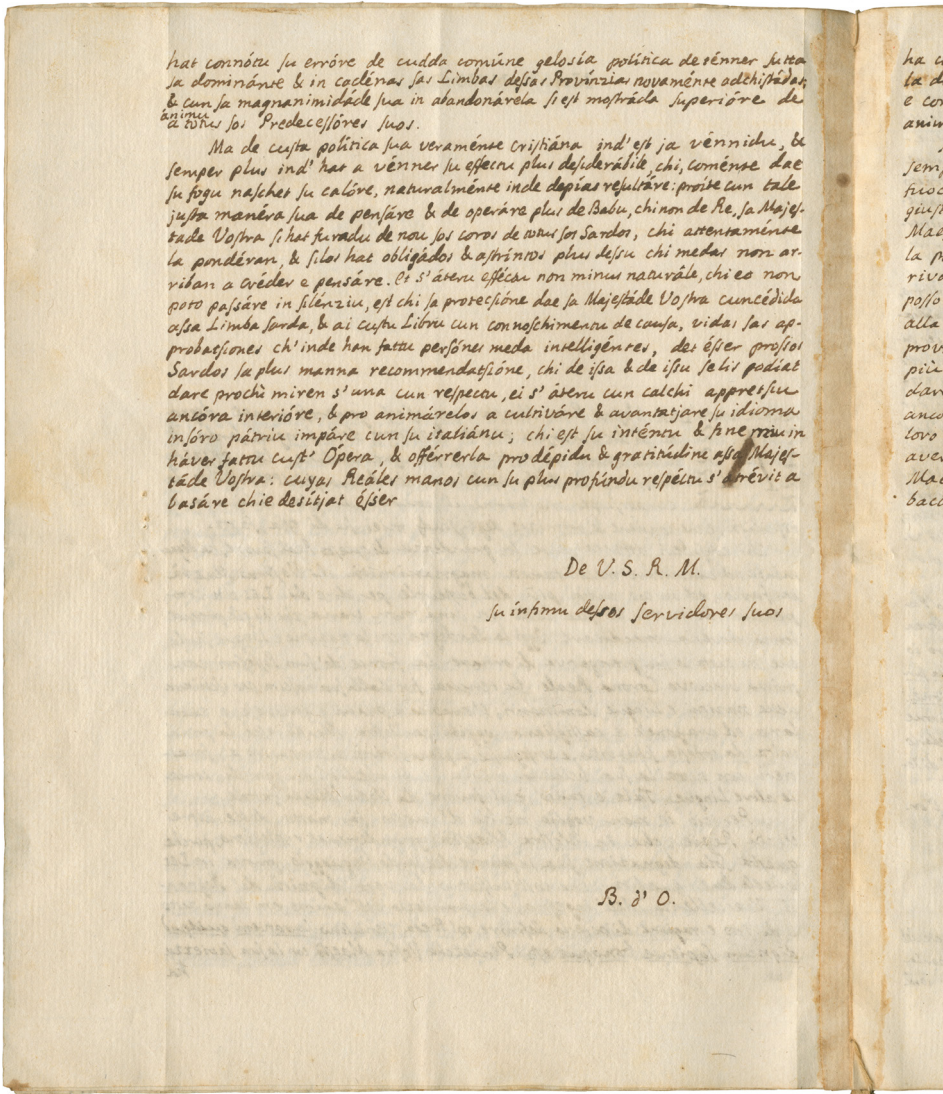 hat connótu su erróre de cudda comúne gelosía política de ténner sutta
sa dominánte & in cadénas sas Limbas dessas Provínzias novaménte adchistádas,
& cun sa magnanimidáde sua in abandonárela si est mostráda superióre de
ánimu
a totus sos Predecessóres suos.
Ma de custa política sua veraménte cristiána ind' est ja vénnidu, &
semper plus ind' hat a vénner su effectu plus desiderábile, chi, coménte dae
su fogu naschet su calóre, naturalménte inde depías resultáre: proite cun tale
justa manéra sua de pensáre & de operáre plus de Babu, chi non de Re, sa Majes-
tade Vostra si hat furadu de nou sos coros de totus sos Sardos, chi attentaménte
la pondéran, & silos hat obligádos & astrintos plus dessu chi medas non ar-
riban a créder e pensáre. Et s' áteru efféctu non minus naturále, chi eo non
poto passáre in silénziu, est chi sa protectióne dae sa Majestáde Vostra cuncédida
assa Limba sarda, & ai custu Libru cun connoschimentu de causa, vidas sas ap-
probatsiones ch' inde han fattu persónes meda intelligéntes, det ésser prossos
Sardos sa plus manna recommendatsióne, chi de issa & de issu selis podiat
dare prochì miren s' una cun respectu, ei s' áteru cun calchi appretsiu
ancóra interióre, & pro animárelos a cultiváre & avantatjare su idioma
insóro pátriu impáre cun su italiánu; chi est su inténtu & fine miu in
háver fattu cust' Ópera, & offérrerla pro dépidu & gratitudine assa Majes-
táde Vostra: cuyas Reáles manos cun su plus profúndu respéctu s' atrévit a
basáre chie desítjat ésser
De V. S. R. M.
su ínfimu dessos servidores suos
B. d' O.
ha c
la d
e con
anim
semp
fuoc
giust
Maes
la p
riva
posso
alla
prov
più
dar
anco
loro
aver
Mae
baci